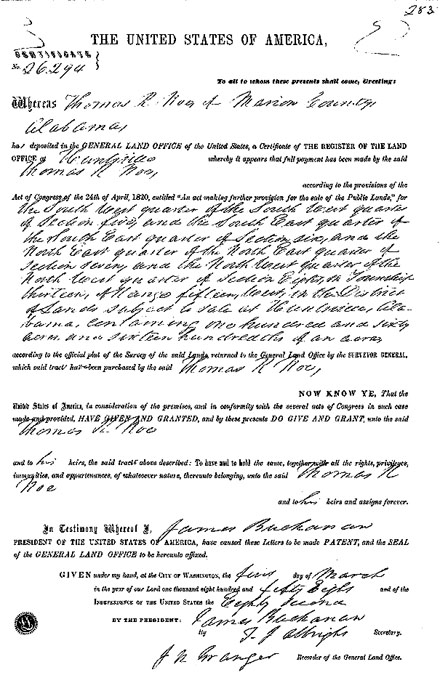 283
THE UNITED STATES OF AMERICA,
CERTIFICATE
No. 26,294
To all to whom these presents shall come, Greeting:
Whereas Thomas R. Noe of Marion County,
Alabama,
has deposited in the GENERAL LAND OFFICE of the United States, a Certificate of THE REGISTER OF THE LAND
OFFICE at Huntsville whereby it appears that full payment has been made by the said
Thomas R Noe,
according to the provisions of the
Act of Congress of the 24th of April, 1820, entitled "An act making further provision for the sale of the Public Lands," for
the South West quarter of the South West quarter
of Section five, and the South East quarter of
the South East quarter of Section six, and the
North East quarter of the North East quarter of
Section seven, and the North West quarter of the
North West quarter of Section Eight, in Township
thirteen, of Range fifteen, West, in the District
of Lands subject to sale at Huntsville, Ala-
bama, containing one hundred and sixty
acres and sixteen hundredths of an acre,
according to the official plat of the Survey of the said Lands, returned to the General Land Office by the SURVEYOR GENERAL,
which said tract has been purchased by the said Thomas R Noe,
NOW KNOW YE, That the
United States of America, in consideration of the premises, and in conformity with the several acts of Congress in such case
made and provided, HAVE GIVEN AND GRANTED, and by these presents DO GIVE AND GRANT, unto the said
Thomas R. Noe
and to his heirs, the said tract above described: To have and to hold the same, together with all the rights, privileges,
immunities, and appurtenances, of whatsoever nature, thereunto belonging, unto the said Thomas R
Noe
and to his heirs and assigns forever.
In Testimony Whereof I, James Buchanan
PRESIDENT OF THE UNITED STATES OF AMERICA, have caused these Letters to be made PATENT, and the SEAL
of the GENERAL LAND OFFICE to be hereunto affixed.
GIVEN under my hand, at the CITY OF WASHINGTON, the first day of March
in the year of our Lord one thousand eight hundred and fifty Eight and of the
INDEPENDENCE OF THE UNITED STATES the Eighty Second
BY THE PRESIDENT: James Buchanan
By T. J. Albright Secretary.
J. N. Granger Recorder of the General Land Office.